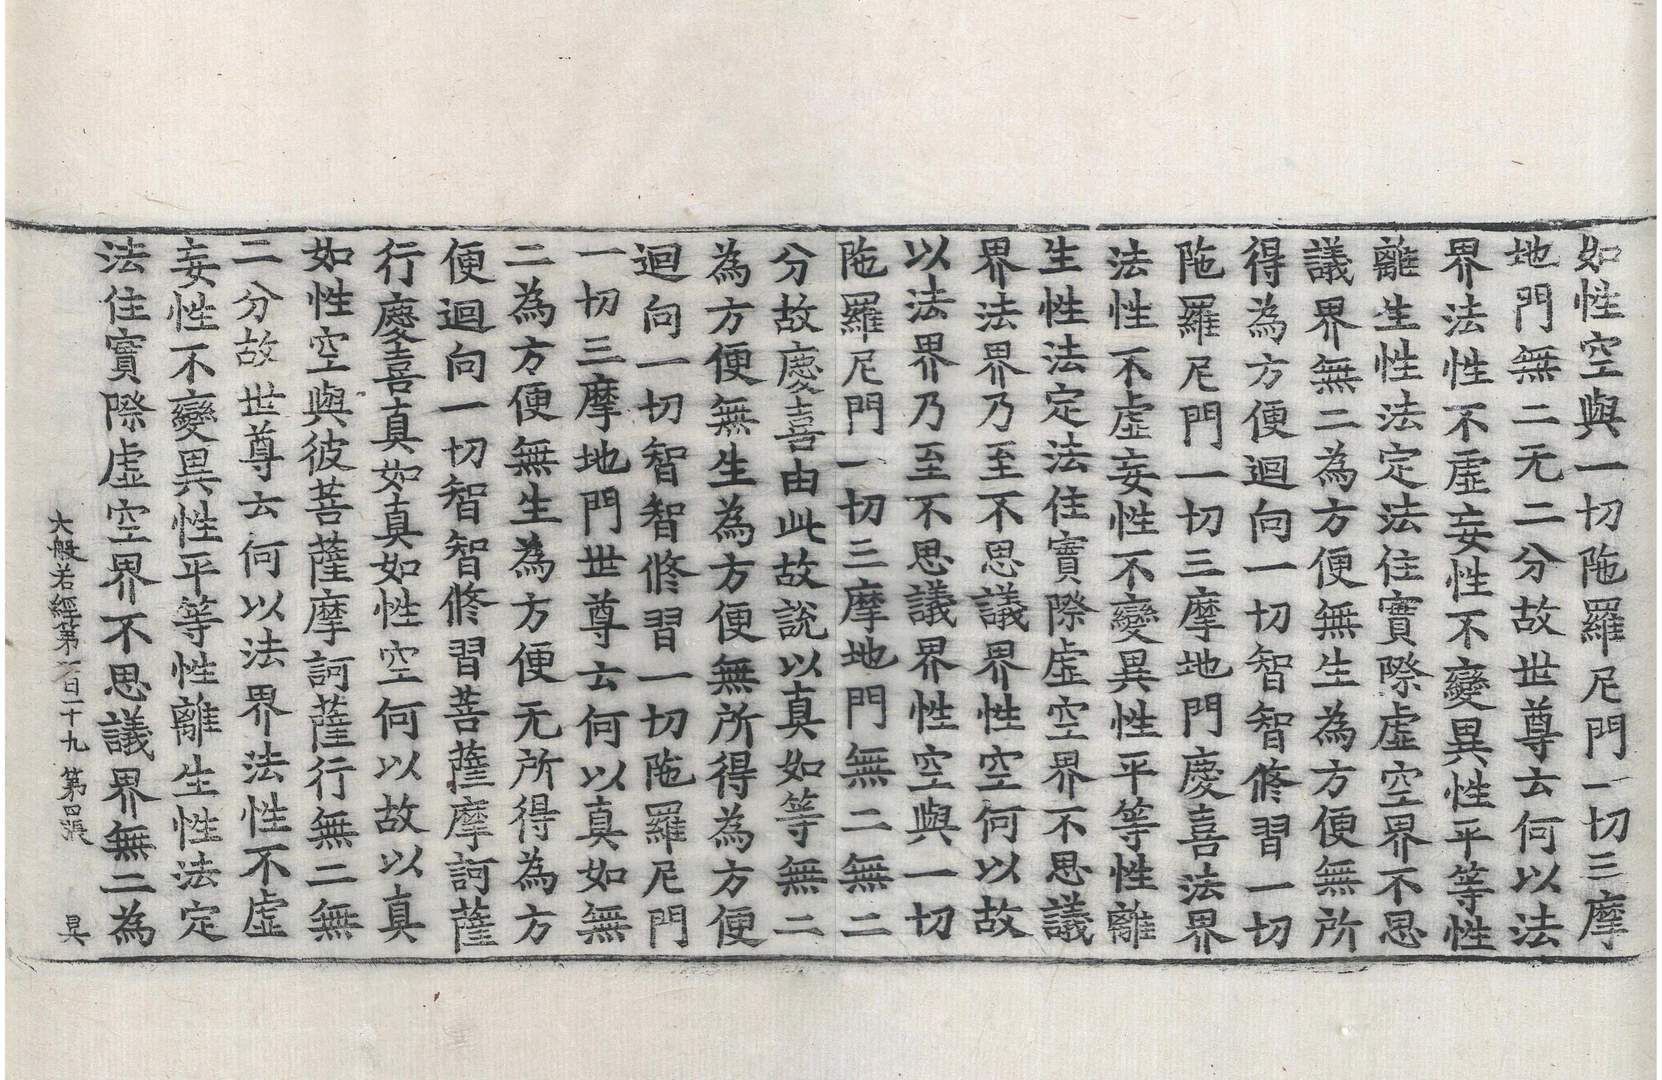 如性空與一切陁羅尼門一切三摩
地門無二无二分故世尊云何以法
界法性不虛妄性不變異性平等性
離生性法定法住實際虛空界不思
議界無二為方便無生為方便無所
得為方便迴向一切智智修習一切
陁羅尼門一切三摩地門慶喜法界
法性不虛妄性不變異性平等性離
生性法定法住實際虛空界不思議
界法界乃至不思議界性空何以故
以法界乃至不思議界性空與一切
陁羅尼門一切三摩地門無二無二
分故慶喜由此故說以真如等無二
為方便無生為方便無所得為方便
迴向一切智智修習一切陁羅尼門
一切三摩地門世尊云何以真如無
二為方便無生為方便无所得為方
便迴向一切智智修習菩薩摩訶薩
行慶喜真如真如性空何以故以真
如性空與彼菩薩摩訶薩行無二無
二分故世尊云何以法界法性不虛
妄性不變異性平等性離生性法定
法住實際虛空界不思議界無二為
大般若經第一百一十九 第四張 昃